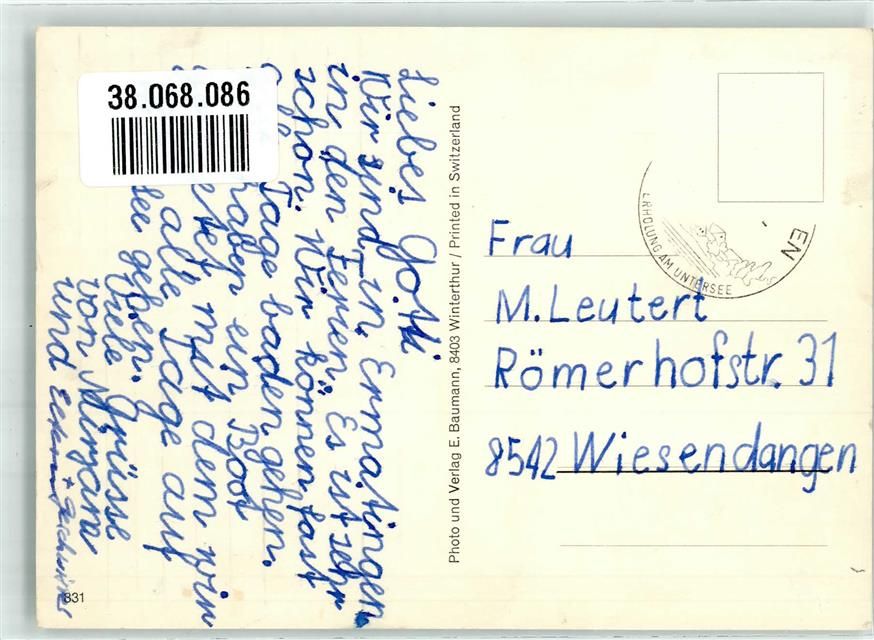 38.068.086
Liebes Gotti
Wir sind in Ermatingen
in den Ferien. Es ist sehr
schön. Wir können fast
Tage baden gehen.
haben ein Boot
mit dem wir
alle Tage auf
See gehen.
Viele Grüsse
von Mirjam
und Eltern + Geschwister
831
Photo und Verlag E. Baumann, 8403 Winterthur / Printed in Switzerland
EN
ERHOLUNG AM UNTERSEE
Frau
M. Leutert
Römerhofstr. 31
8542 Wiesendangen